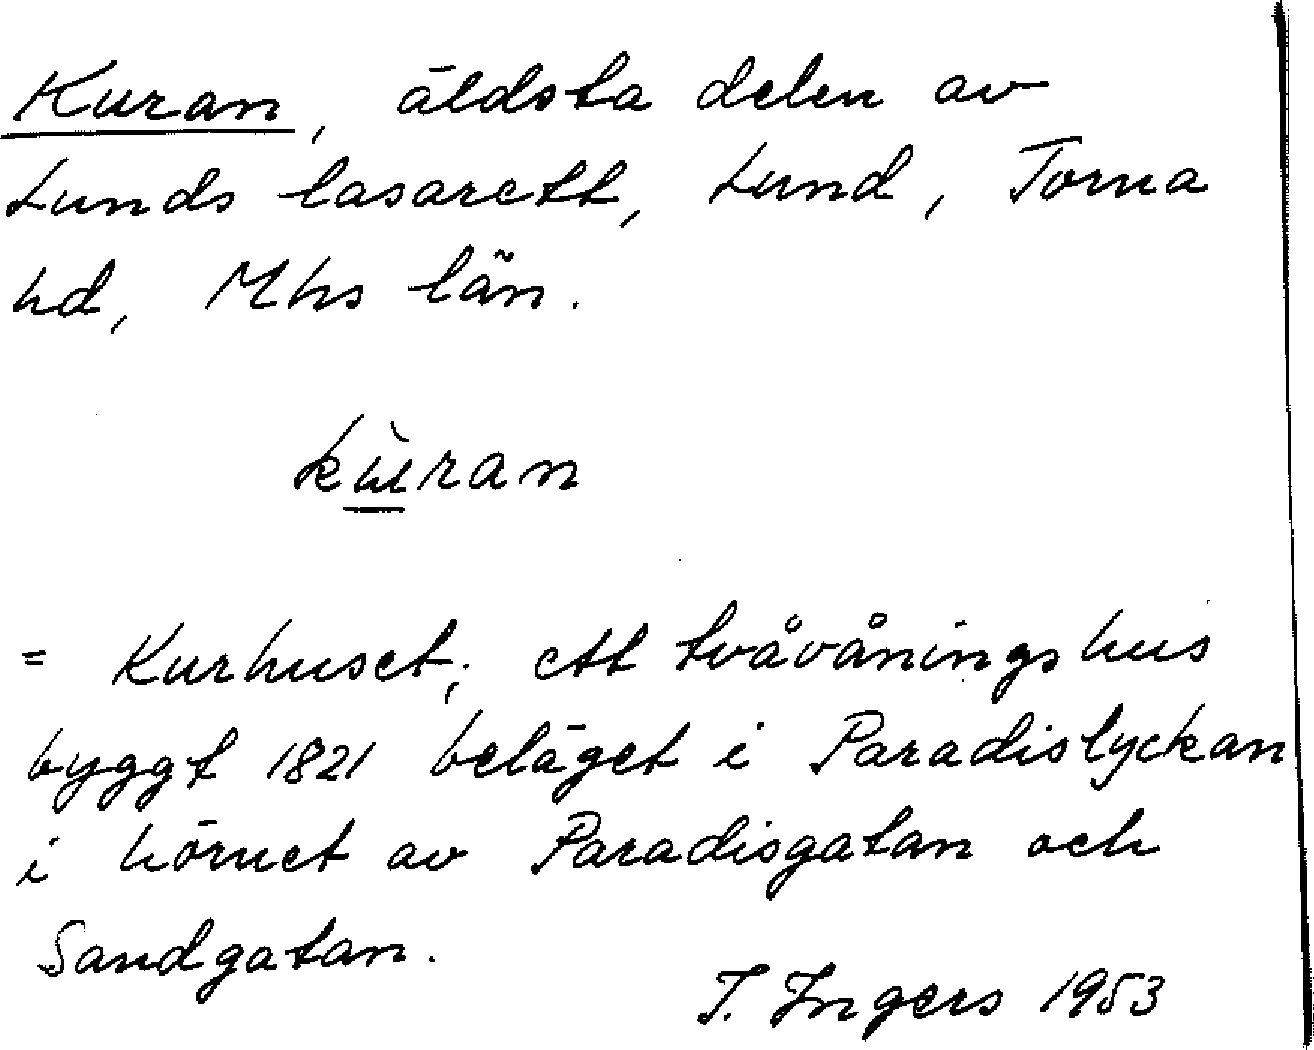 Kuran, äldsta delen av
Lunds lasarett, Lund, Torna
hd, Mhs län.
kùran
= Kurhuset; ett tvåvåningshus
byggt 1821 beläget i Paradislyckan
i hörnet av Paradisgatan och
Sandgatan.
I. Ingers 1953